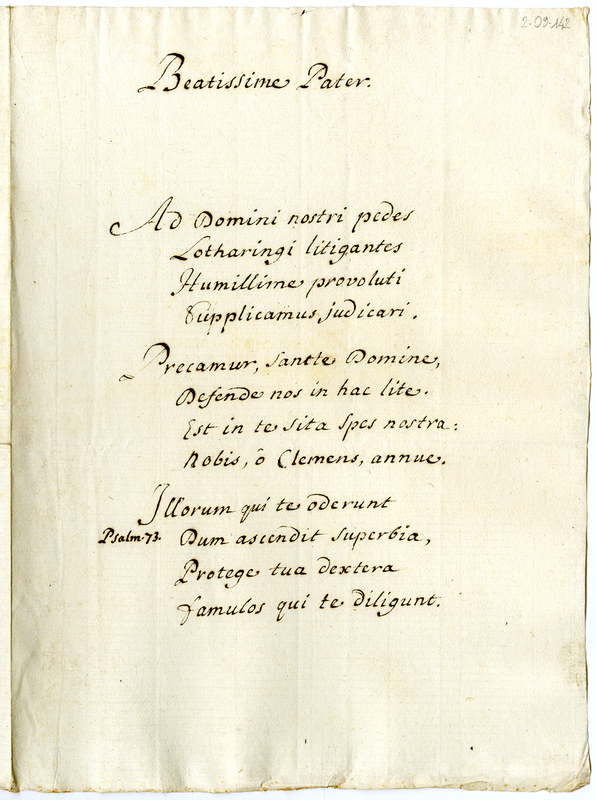 2-09-142
Beatissime Pater.
Ad Domini nostri pedes
Lotharingi litigantes
Humillime provoluti
Supplicamus judicari.
Precamur, sancte Domine,
Defende nos in hac lite.
Est in te sita spes nostra:
Nobis, ô Clemens, annue.
Illorum qui te oderunt
Psalm. 73. Dum ascendit superbia,
Protege tua dextera
famulos qui te diligunt.